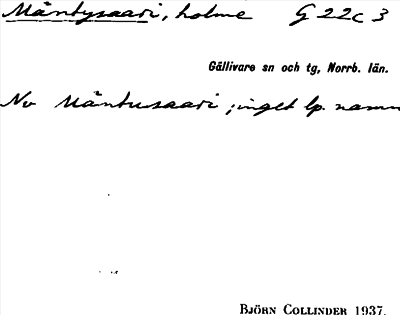 Mäntysaari, holme G 22c 3
Gällivare sn och tg, Norrb. län.
No Mäntusaari; inget lp. namn
BJÖRN COLLINDER 1937.